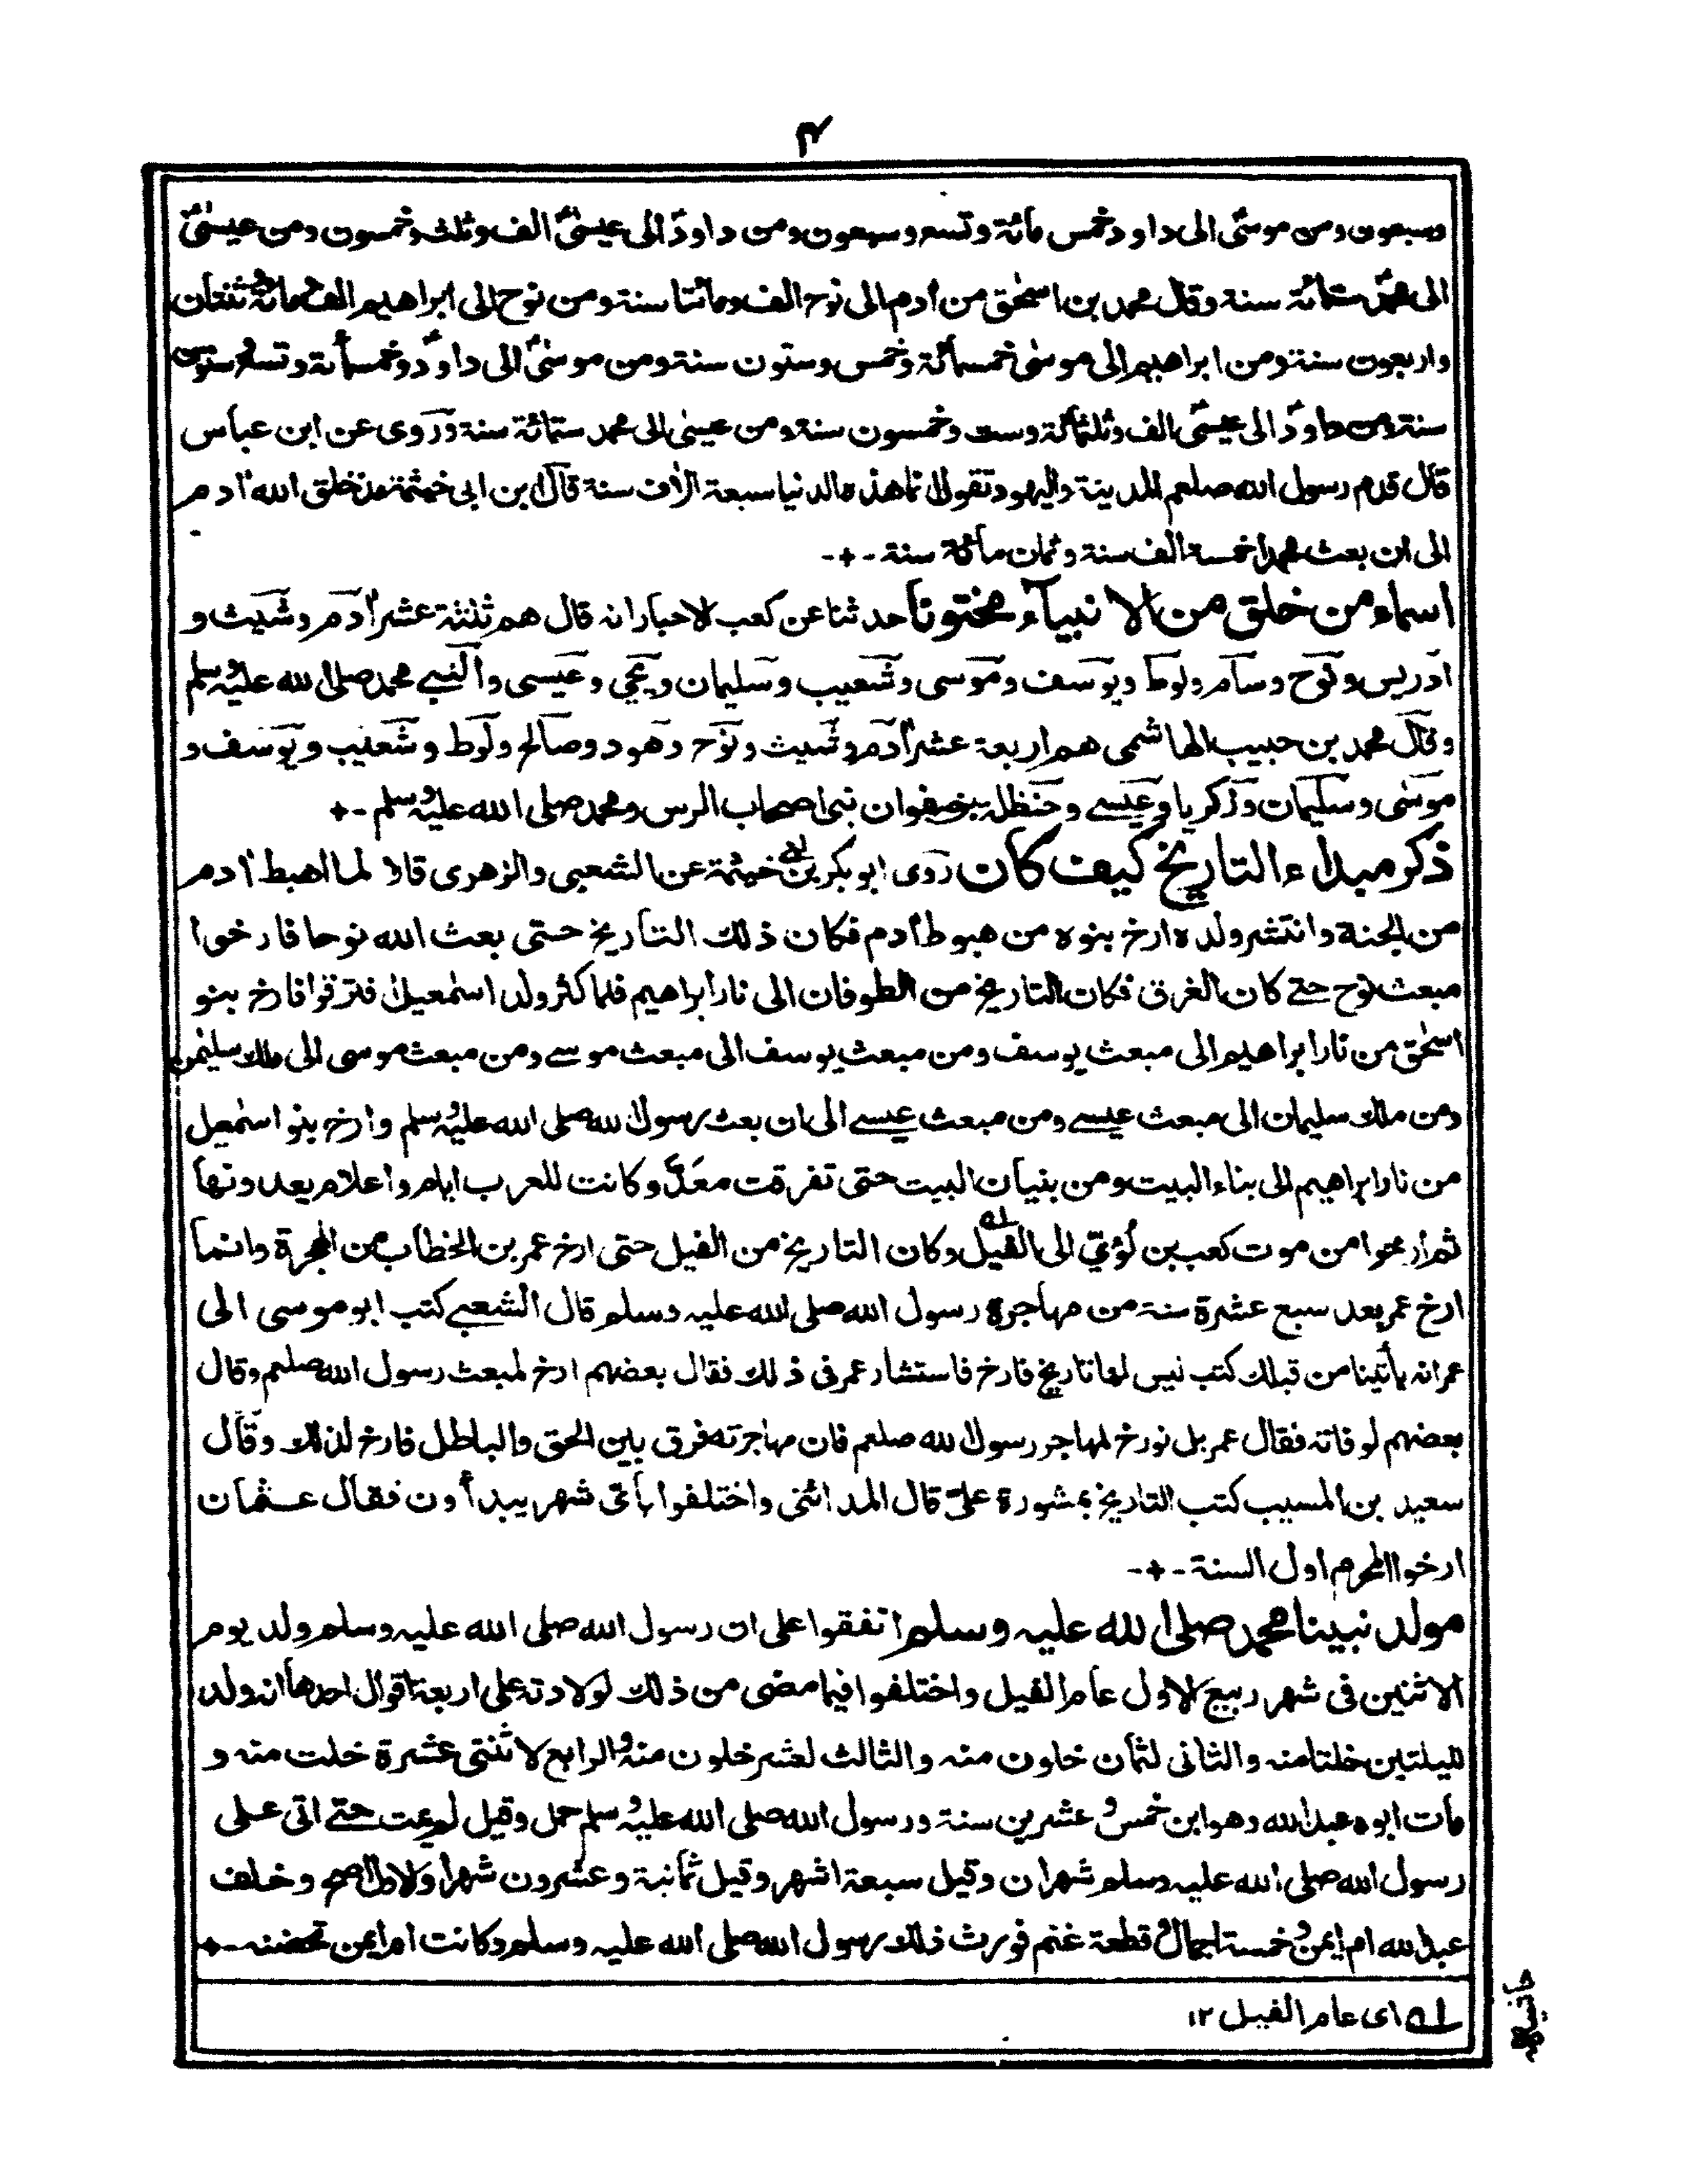 ٣
وسبعون ومن موسىٰؑ الى داود خمس مائة وتسع وسبعون ومن داودؑ الى عيسىٰؑ الف وثلث وخمسون ومن عيسىٰؑ
الى محمدؐ ستمائة سنة وقال محمد بن اسحٰق من اٰدم الى نوح الف ومائتا سنة ومن نوح الى ابراهيم الف ومائة وثنتان
واربعون سنة ومن ابراهيم الى موسىٰ خمسمائة وخمس وستون سنة ومن موسىٰؑ الى داودؑ وخمسمأئة وتسع وستون
سنة ومن داودؑ الى عيسىؑ الف وثلثمائة وست وخمسون سنة ومن عيسىٰ الى محمد ستمائة سنة وروى عن ابن عباس
قال قدم رسول الله صلعم المدينة واليهود تقول انما هذه الدنيا سبعة اٰلاف سنة قال ابن ابى خيثمة منذ خلق الله اٰدم
الى ان بعث محمدا خمسة الف سنة وثمان مائة سنة -+-
اسماء من خلق من الانبيآء مختونا حدثنا عن كعب الاحبار انه قال هم ثلٰثة عشر اٰدم وشيث و
ادريس ونوح وسام ولوط ويوسف وموسى وشعيب وسليمان ويحيى وعيسى والنبے محمد صلى الله عليه وسلم
وقال محمد بن حبيب الهاشمى هم اربعة عشر اٰدم وشيث ونوح وهود وصالح ولوط وشعيب ويوسف و
موسى وسليمان وزكريا وعيسے وحنظلة بن صفوان نبى اصحاب الرس ومحمد صلى الله عليه وسلم -+
ذكر مبداء التاريخ كيف كان روى ابو بكر بن ابى خيثمة عن الشعبى والزهرى قالا لما اهبط اٰدم
من الجنة وانتشر ولده ارخ بنوه من هبوط اٰدم فكان ذلك التاريخ حتى بعث الله نوحا فارخوا
مبعث نوح حتے كان الغرق فكان التاريخ من الطوفان الى نار ابراهيم فلما كثر ولد اسمٰعيل افترقوا فارخ بنو
اسحٰق من نار ابراهيم الى مبعث يوسف ومن مبعث يوسف الى مبعث موسے ومن مبعث موسى الى ملك سليمٰن
ومن ملك سليمان الى مبعث عيسے ومن مبعث عيسے الى ان بعث رسول الله صلى الله عليه وسلم وارخ بنو اسمٰعيل
من نار ابراهيم الى بناء البيت ومن بنيان البيت حتى تفرقت معدّ وكانت للعرب ايام واعلام يعدونها
ثم ارخوا من موت كعب بن لُؤيّ الى الفيل لـه وكان التاريخ من الفيل حتى ارخ عمر بن الخطاب من الهجرة وانما
ارخ عمر بعد سبع عشرة سنة من مهاجرة رسول الله صلى الله عليه وسلم قال الشعبے كتب ابو موسى الى
عمر انه يأتينا من قبلك كتب ليس لها تاريخ فارخ فاستشار عمر فى ذلك فقال بعضهم ارخ لمبعث رسول الله صلعم وقال
بعضهم لوفاته فقال عمر بل نورخ لمهاجر رسول الله صلعم فان مهاجرته فرق بين الحق والباطل فارخ لذلك وقال
سعيد بن المسيب كتب التاريخ بمشورة علىّ قال المدائنى واختلفوا باى شهر يبدأون فقال عثمان
ارخوا المحرم اول السنة -+-
مولد نبينا محمد صلى الله عليه وسلم اتفقوا على ان رسول الله صلى الله عليه وسلم ولد يوم
الاثنين فى شهر ربيع الاول عام الفيل واختلفوا فيما مضى من ذلك لولادته على اربعة اقوال احدها انه ولد
لليلتين خلتا منه والثانى لثمان خلون منه والثالث لعشر خلون منه والرابع لاثنتى عشرة خلت منه و
مات ابوه عبد الله وهو ابن خمس وعشرين سنة ورسول الله صلى الله عليه وسلم حمل وقيل لم يمت حتے اتى على
رسول الله صلى الله عليه وسلم شهران وقيل سبعة اشهر وقيل ثمانية وعشرون شهرا والاول اصح وخلف
عبد الله ام ايمن وخمسة اجمال وقطعة غنم فورث ذلك رسول الله صلى الله عليه وسلم وكانت ام ايمن تحضنه -+
لـه اى عام الفيل ١٢